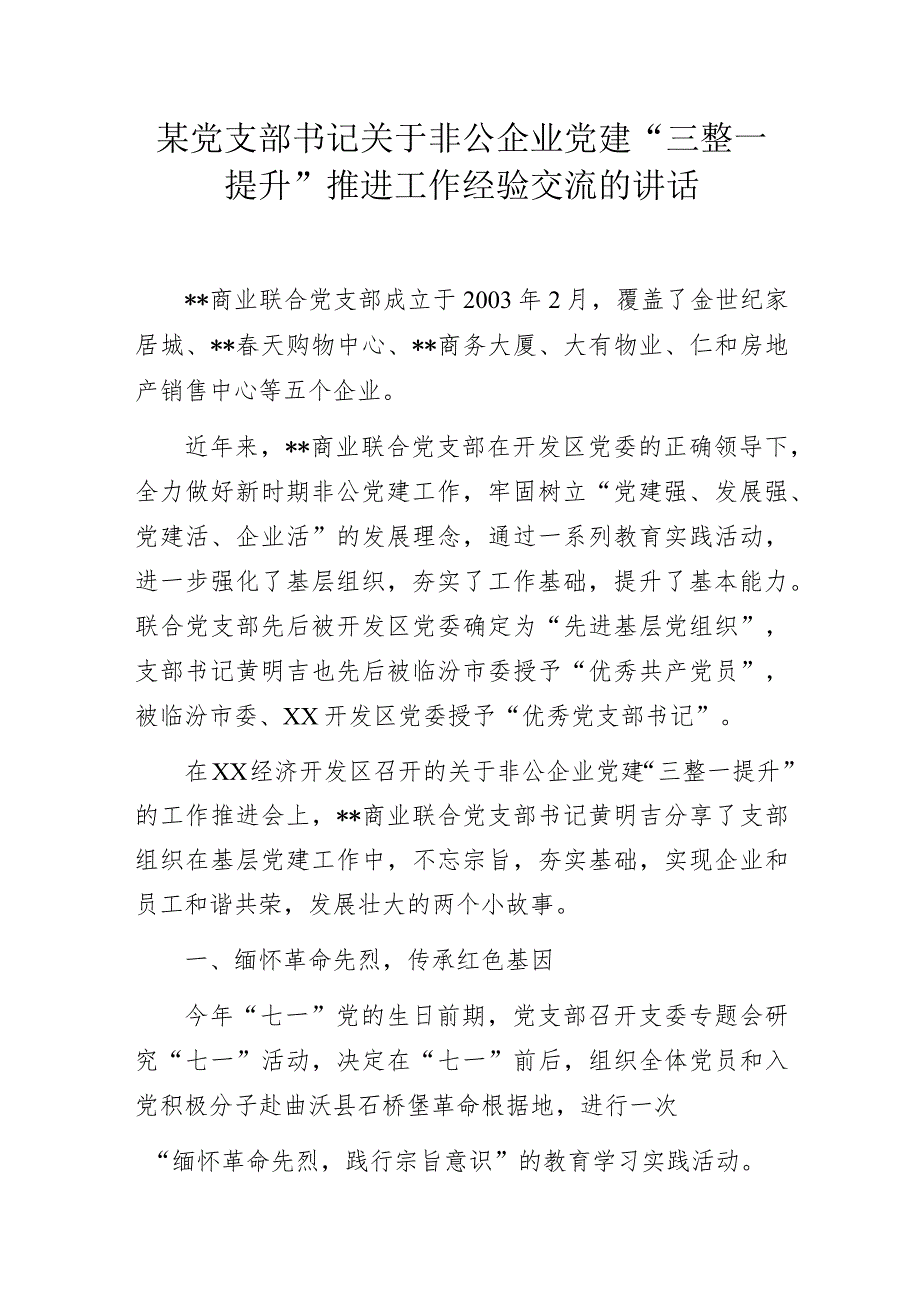 某党支部书记关于非公企业党建“三整一
提升”推进工作经验交流的讲话
**商业联合党支部成立于2003年2月，覆盖了金世纪家
居城、**春天购物中心、**商务大厦、大有物业、仁和房地
产销售中心等五个企业。
近年来，**商业联合党支部在开发区党委的正确领导下，
全力做好新时期非公党建工作，牢固树立“党建强、发展强、
党建活、企业活”的发展理念，通过一系列教育实践活动，
进一步强化了基层组织，夯实了工作基础，提升了基本能力。
联合党支部先后被开发区党委确定为“先进基层党组织”，
支部书记黄明吉也先后被临汾市委授予“优秀共产党员”，
被临汾市委、XX开发区党委授予“优秀党支部书记”。
在XX经济开发区召开的关于非公企业党建“三整一提升”
的工作推进会上，**商业联合党支部书记黄明吉分享了支部
组织在基层党建工作中，不忘宗旨，夯实基础，实现企业和
员工和谐共荣，发展壮大的两个小故事。
一、缅怀革命先烈，传承红色基因
今年“七一”党的生日前期，党支部召开支委专题会研
究“七一”活动，决定在“七一”前后，组织全体党员和入
党积极分子赴曲沃县石桥堡革命根据地，进行一次
“缅怀革命先烈，践行宗旨意识”的教育学习实践活动。